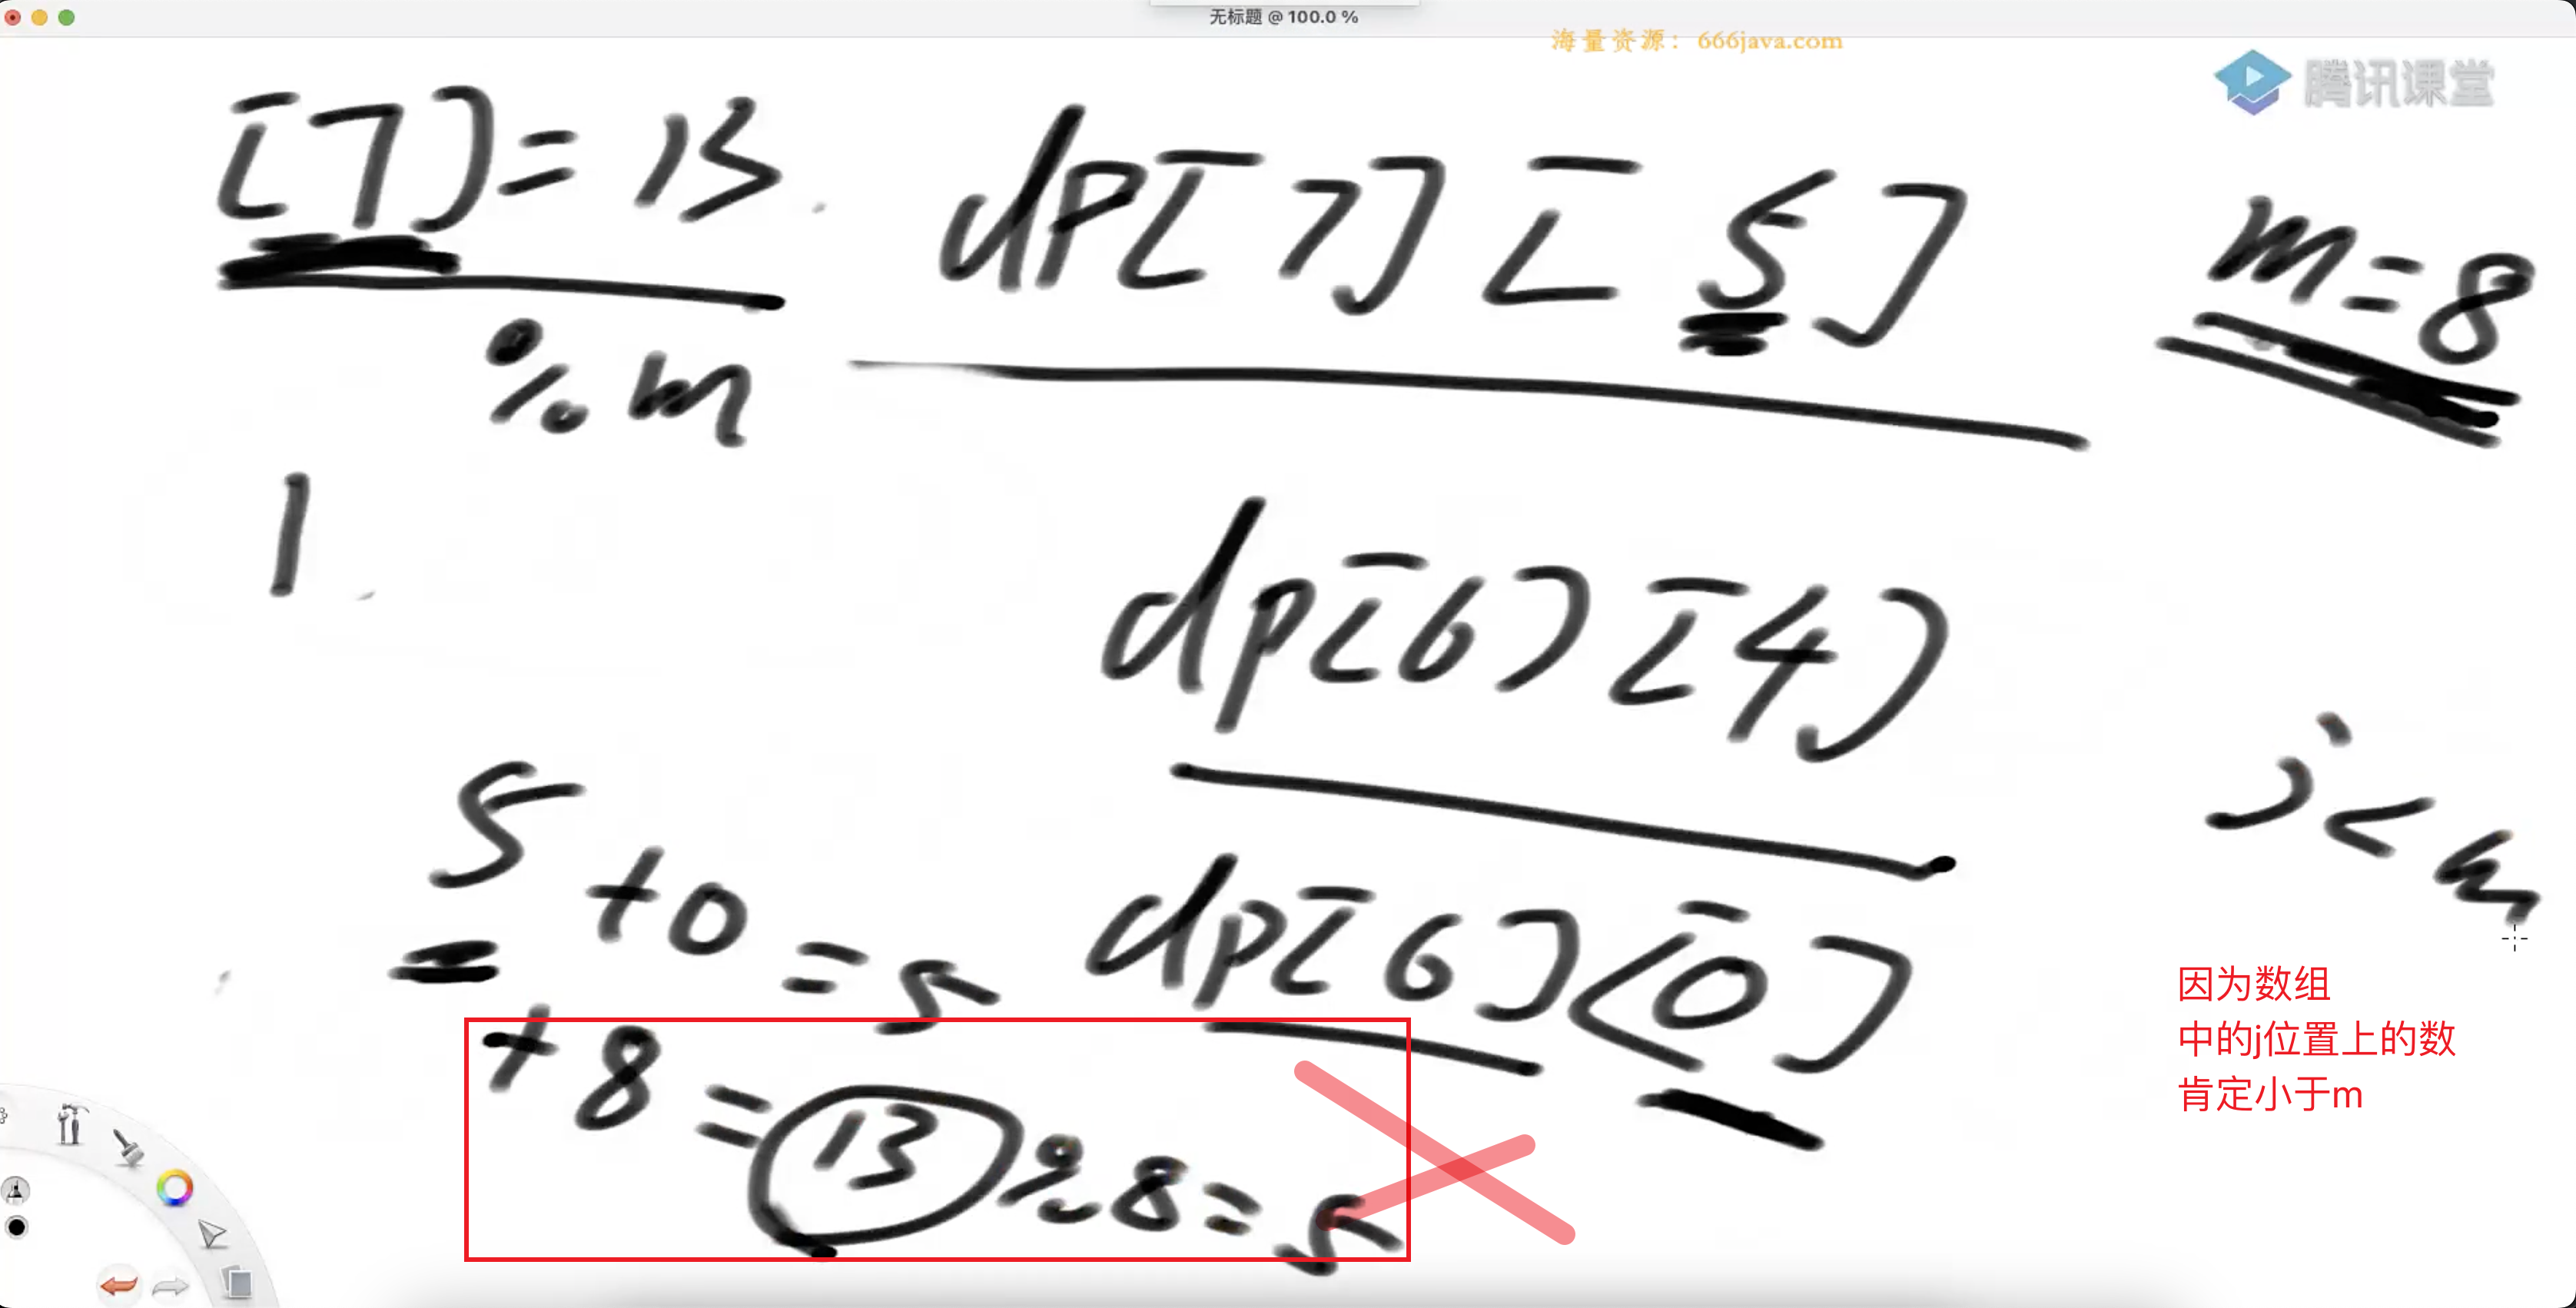 无标题 @ 100.0 %
海量资源：666java.com
腾讯课堂
[7]=13
dp[7][5]
m=8
%m
1
dp[6][4]
5
+0=5
dp[6][0]
j<m
+8=13%8=5
因为数组
中的j位置上的数
肯定小于m